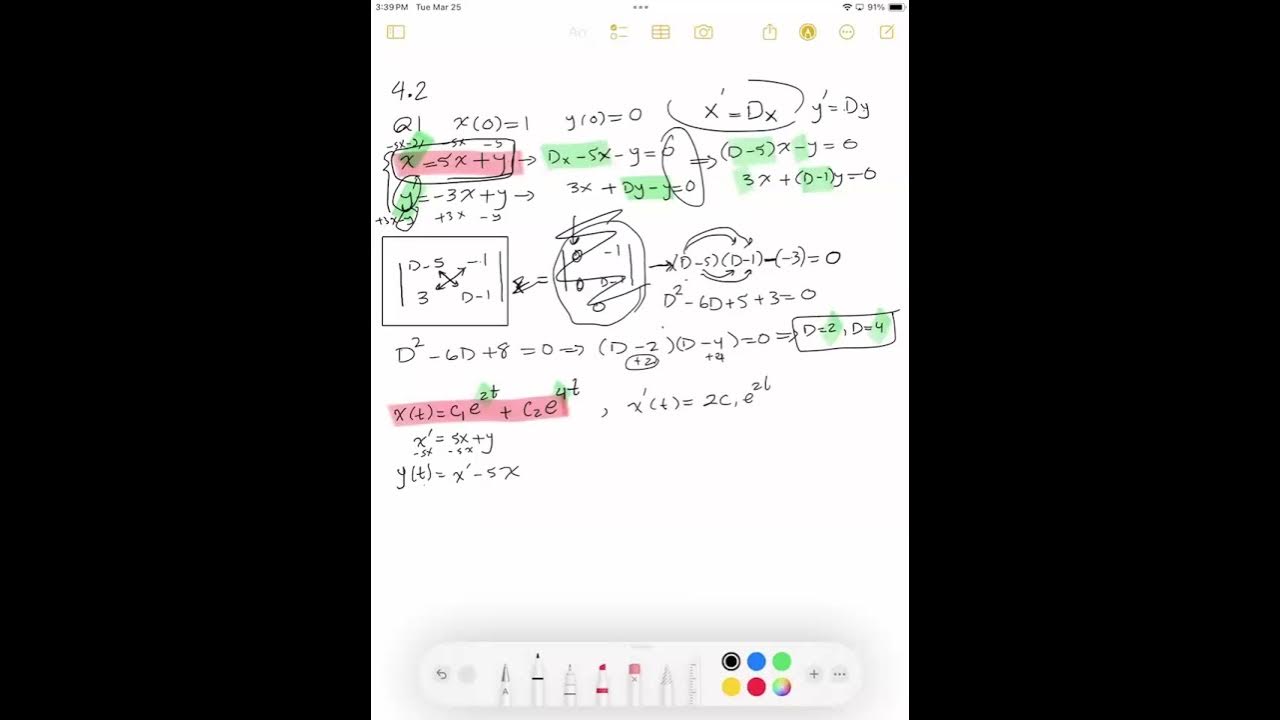 3:39 PM Tue Mar 25 91%
4.2
Q1 x(0)=1 y(0)=0 x'=Dx y'=Dy
-5x -y
x'=5x+y → Dx-5x-y=0 ⟹ (D-5)x-y=0
y'=-3x+y → 3x+Dy-y=0 3x+(D-1)y=0
+3x-y +3x -y
|D-5 -1| x = |0 -1| → (D-5)(D-1)-(-3)=0
|3 D-1| |0 D-1|
0 D²-6D+5+3=0
D²-6D+8=0 ⟹ (D-2)(D-4)=0 ⟹ D=2, D=4
+2 +4
x(t)=C₁e^{2t}+C₂e^{4t}, x'(t)=2C₁e^{2t}
x'=5x+y
-5x -5x
y(t)=x'-5x
A